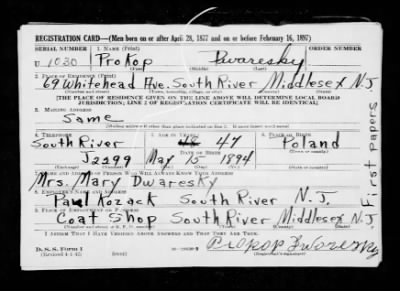 REGISTRATION CARD—(Men born on or after April 28, 1877 and on or before February 16, 1897)
SERIAL NUMBER 1. NAME (Print) ORDER NUMBER
U 1030 Prokop Dwaresky
2. PLACE OF RESIDENCE (Print)
69 Whitehead Ave. South River Middlesex N.J.
[THE PLACE OF RESIDENCE GIVEN ON THE LINE ABOVE WILL DETERMINE LOCAL BOARD
JURISDICTION; LINE 2 OF REGISTRATION CERTIFICATE WILL BE IDENTICAL]
3. MAILING ADDRESS
Same
4. TELEPHONE
South River 47 Poland
DATE OF BIRTH
J2299 May 15 1894
7. NAME AND ADDRESS OF PERSON WHO WILL ALWAYS KNOW YOUR ADDRESS
Mrs. Mary Dwaresky
8. EMPLOYER'S NAME AND ADDRESS
Paul Kozack South River N.J.
9. PLACE OF EMPLOYMENT OR BUSINESS
Coat Shop South River Middlesex N.J.
I AFFIRM THAT I HAVE VERIFIED ABOVE ANSWERS AND THAT THEY ARE TRUE.
D. S. S. Form 1
(Revised 4-1-42)
Prokop Dwaresky
(Registrant's signature)
First Papers